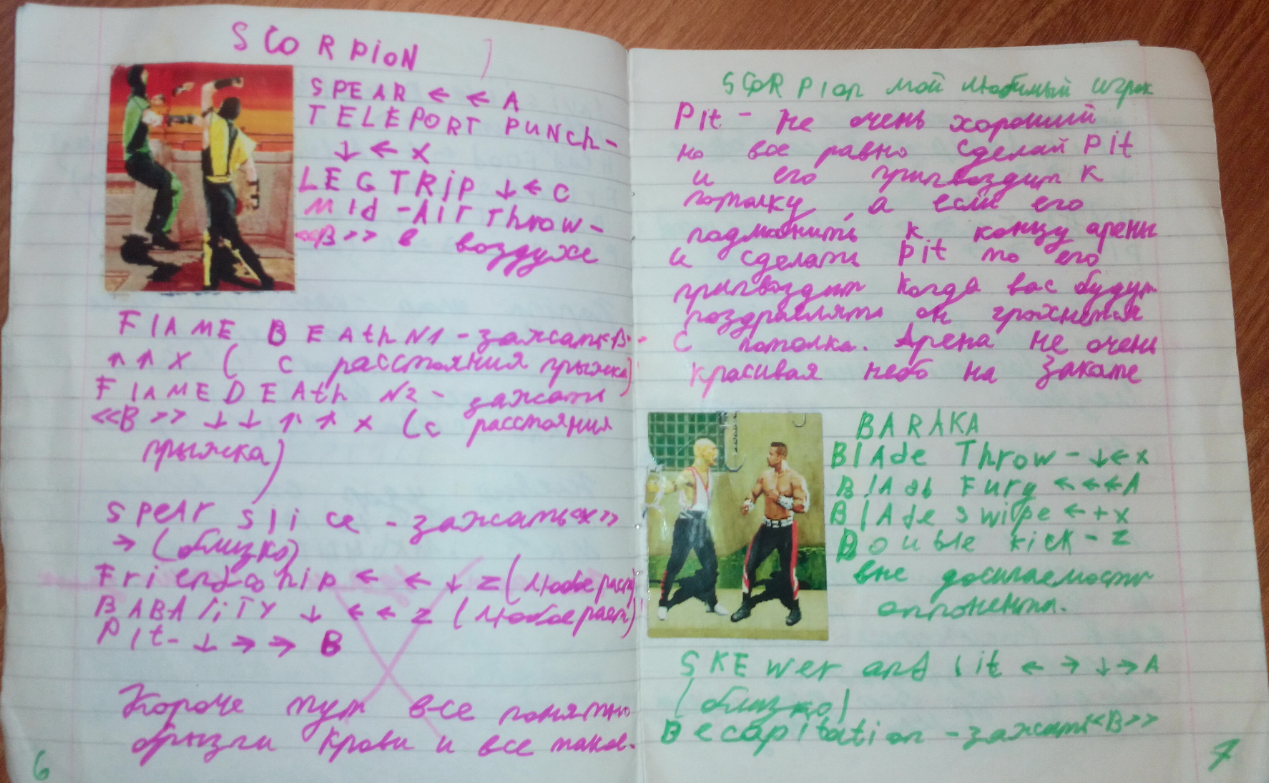 SCORPION
SPEAR ← ← A
TELEPORT PUNCH-
↓ ← X
LEGTRIP ↓ ← C
Mid-Air Throw-
«B» в воздухе
FlAME DEAth N1 - зажать «B»
↑ ↑ X ( с расстояния прыжка)
FlAMEDEAth N2 - зажать
«B» ↓ ↓ ↑ ↑ X (с расстояния
прыжка)
Spear Slice - зажать «X»
→ (близко)
Friendship ← ← ↓ Z (любое раст)
BABAliTY ↓ ← ← Z (любое раст)
Pit- ↓ → → B
Короче тут все понятно
брызги крови и все такое.
6
SCORPion мой любимый игрок
Pit - не очень хороший
но все равно сделай Pit
и его пригвоздит к
потолку, а если его
подманить к концу арены
и сделать Pit то его
пригвоздит когда вас будут
поздравлять он грохнется
с потолка. Арена не очень
красивая небо на закате
BARAKA
BlAde Throw - ↓ ← X
BlAde Fury ← ← ← A
BlAde swipe ← + X
Double kick - Z
вне досигаемости
оппонента.
SKEwer and lit ← → ↓ → A
(близко)
Decapitation - зажать «B»
7